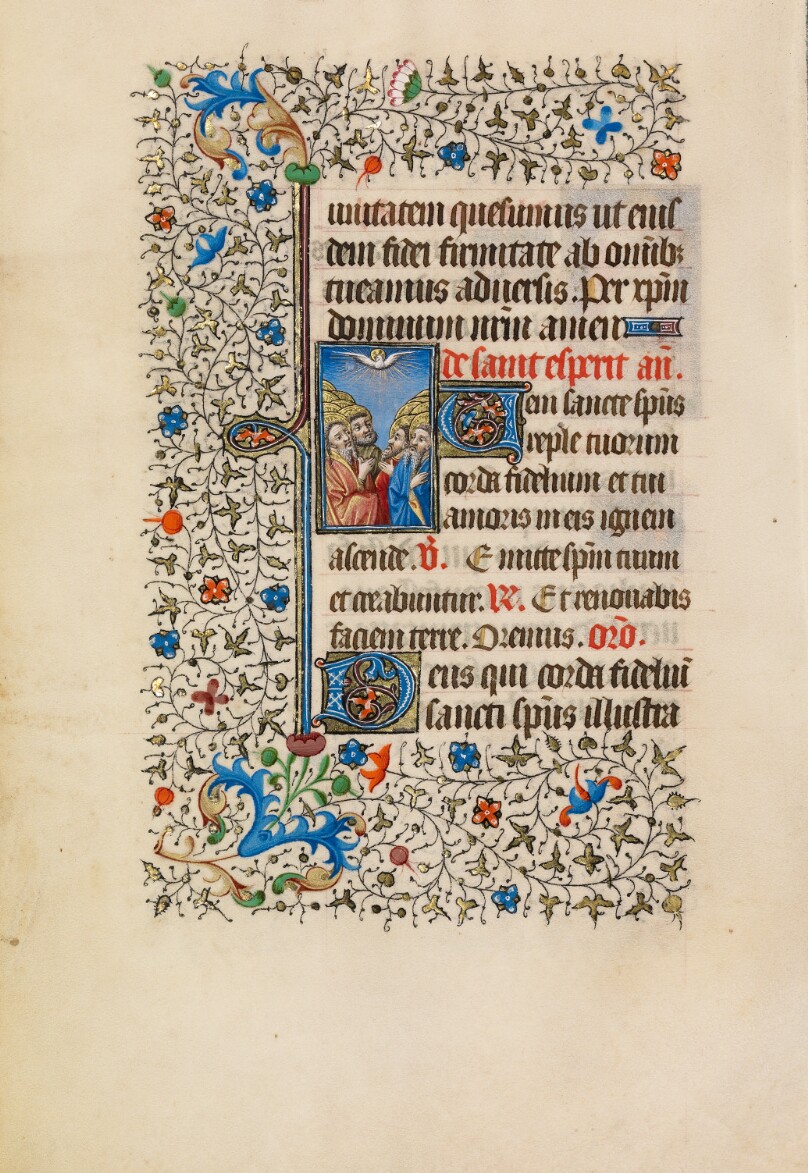 unitatem quesumus ut eius
dem fidei firmitate ab omībꝫ
tueamur aduersis. Per xp̄m
dominum nr̄m amen
de saint esperit an̄.
Ueni sancte sp̄us
reple tuorum
corda fidelium et tui
amoris in eis ignem
ascende. V̄. Emitte sp̄m tuum
et creabuntur. R̄. Et renouabis
faciem terre. Oremus. oro̅.
Deus qui corda fideliū
sancti sp̄us illustra